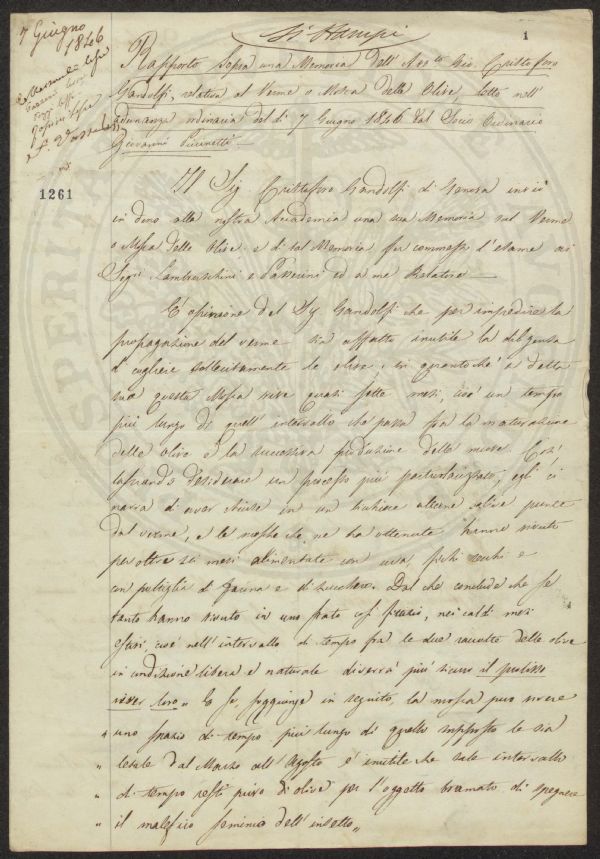 7 Giugno
1846
Si Stampi
1
Rapporto sopra una Memoria dell' Avv.to Gio. Cristoforo
Gandolfi, relativa al Verme o Mosca delle Olive letto nell'
adunanza ordinaria del dì 7 Giugno 1846 dal Socio Ordinario
Giovanni
1261
Il Sig Cristoforo Gandolfi di Genova inviò
in dono alla nostra Accademia una sua Memoria sul Verme
o Mosca delle Olive e di tal Memoria fu commesso l'esame ai
Sigri Lambruschini e Passerini ed a me Relatore
È opinione del Sig Gandolfi che per impedire la
propagazione del verme sia affatto inutile la diligenza
di cogliere sollecitamente le olive, in quantochè a detta
sua questa Mosca vive quasi sette mesi, cioè un tempo
più lungo di quell' intervallo che passa fra la maturazione
delle olive e la successiva produzione delle nuove. Così
lasciando desiderare un processo più particolarizzato, egli ci
narra di aver chiuse in un bicchiere alcune olive punte
dal verme, e le mosche che ne ha ottenute hanno vissuto
per oltre sei mesi alimentate con uva, fichi secchi e
con poltiglia di farina e di zucchero. Dal che conclude che se
tanto hanno vissuto in uno stato così, nei caldi mesi
estivi, cioè nell' intervallo di tempo fra le due raccolte delle olive
in condizione libera e naturale diverrà più sicuro il
viver loro „ E se, soggiunge in seguito, la mosca può vivere
„ uno spazio di tempo più lungo di quello supposto le sia
„ letale dal Marzo all' Agosto è inutile che tale intervallo
„ di tempo resti privo di olive per l'oggetto bramato di spegnere
„ il malefico seminio dell' insetto „